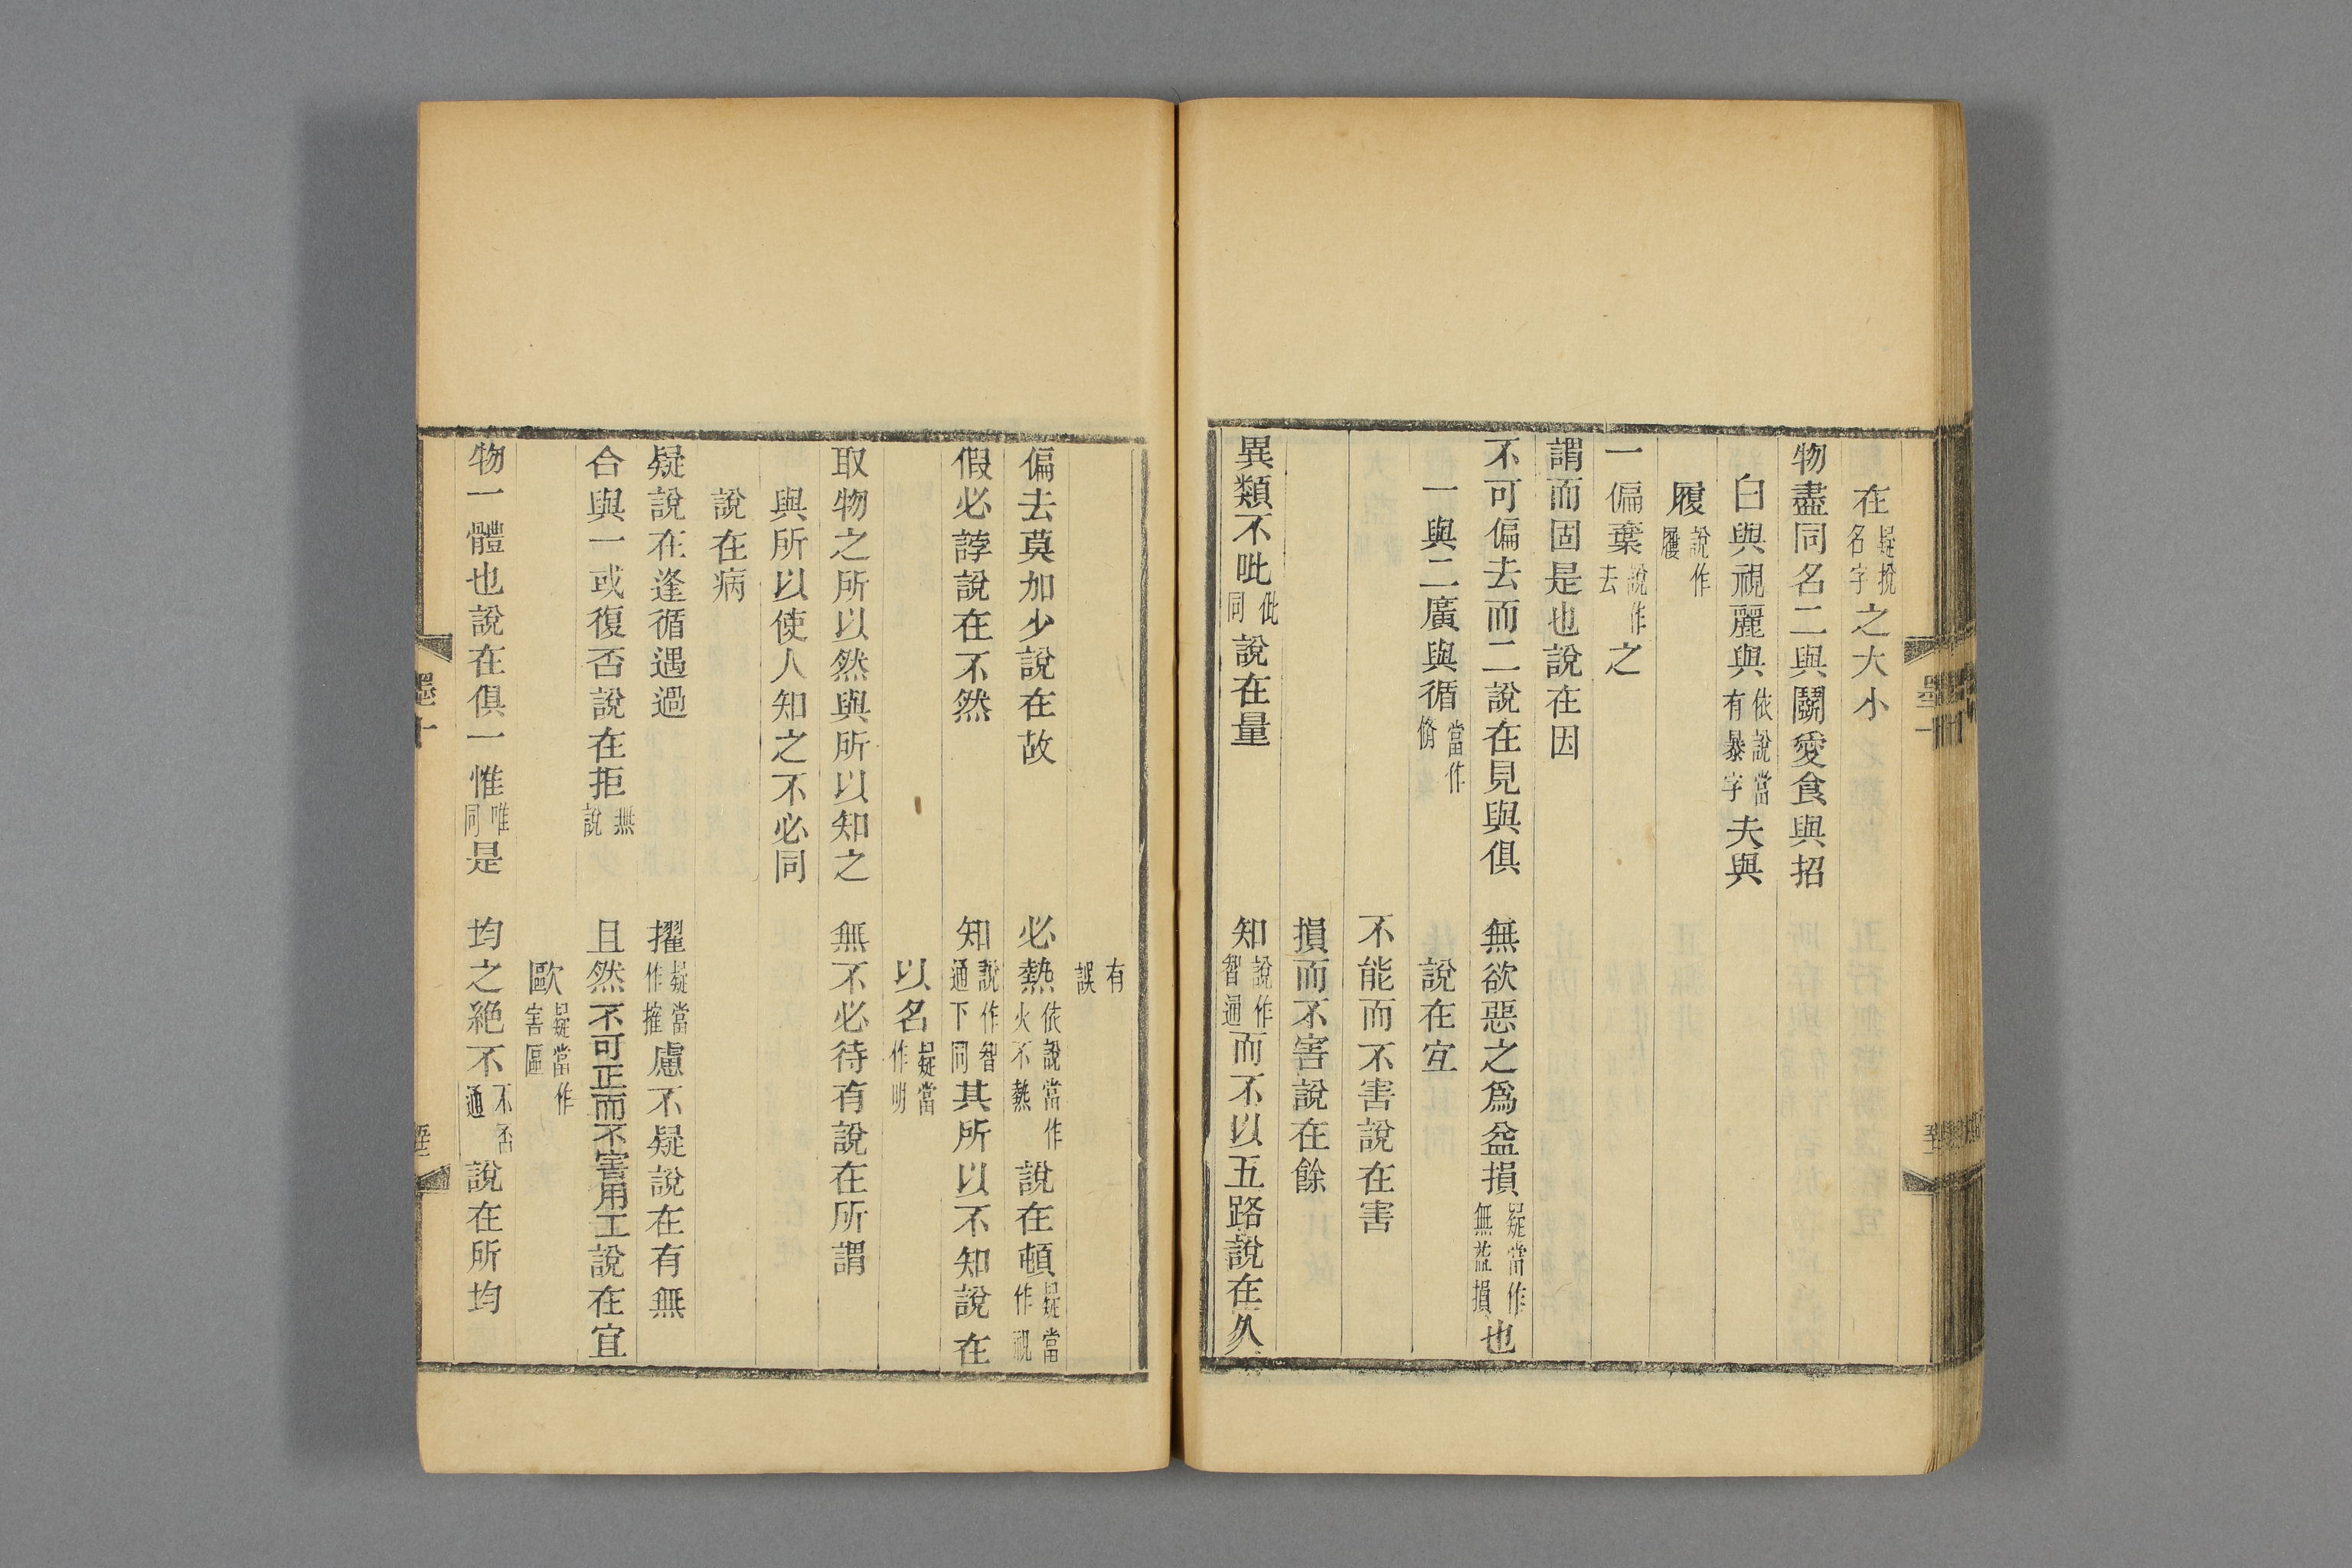 在疑挩名字之大小
物盡同名二與鬭愛食與招
白與視麗與依說當有暴字夫與
履說作屨
一偏棄說作去之
謂而固是也說在因
不可偏去而二說在見與俱　無欲惡之爲益損疑當作無益損也
一與二廣與循當作脩　說在宜
不能而不害說在害
損而不害說在餘
異類不吡仳同說在量　知說作智通而不以五路說在久
有誤
偏去莫加少說在故　必熱依說當作火不熱說在頓疑當作視
假必誖說在不然　知說作智通下同其所以不知說在
以名疑當作明
取物之所以然與所以知之　無不必待有說在所謂
與所以使人知之不必同
說在病
疑說在逢循遇過　擢疑當作搉慮不疑說在有無
合與一或復否說在拒無說　且然不可正而不害用工說在宜
歐疑當作害區
物一體也說在俱一惟唯同是　均之絕不不否通說在所均
墨十